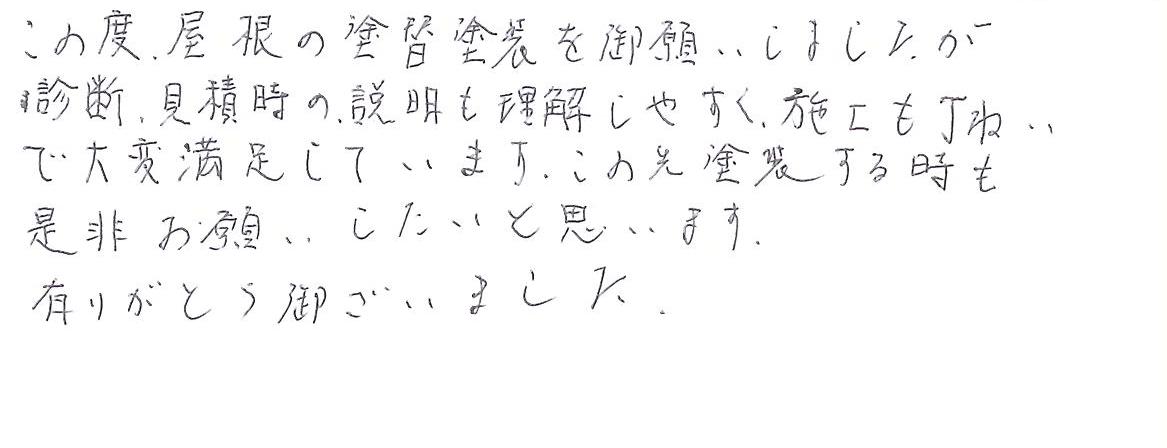 この度、屋根の塗替塗装を御願いしましたが
診断、見積時の、説明も理解しやすく、施工も丁ねい
で大変満足しています。この先塗装する時も
是非お願いしたいと思います。
有りがとう御ざいました。